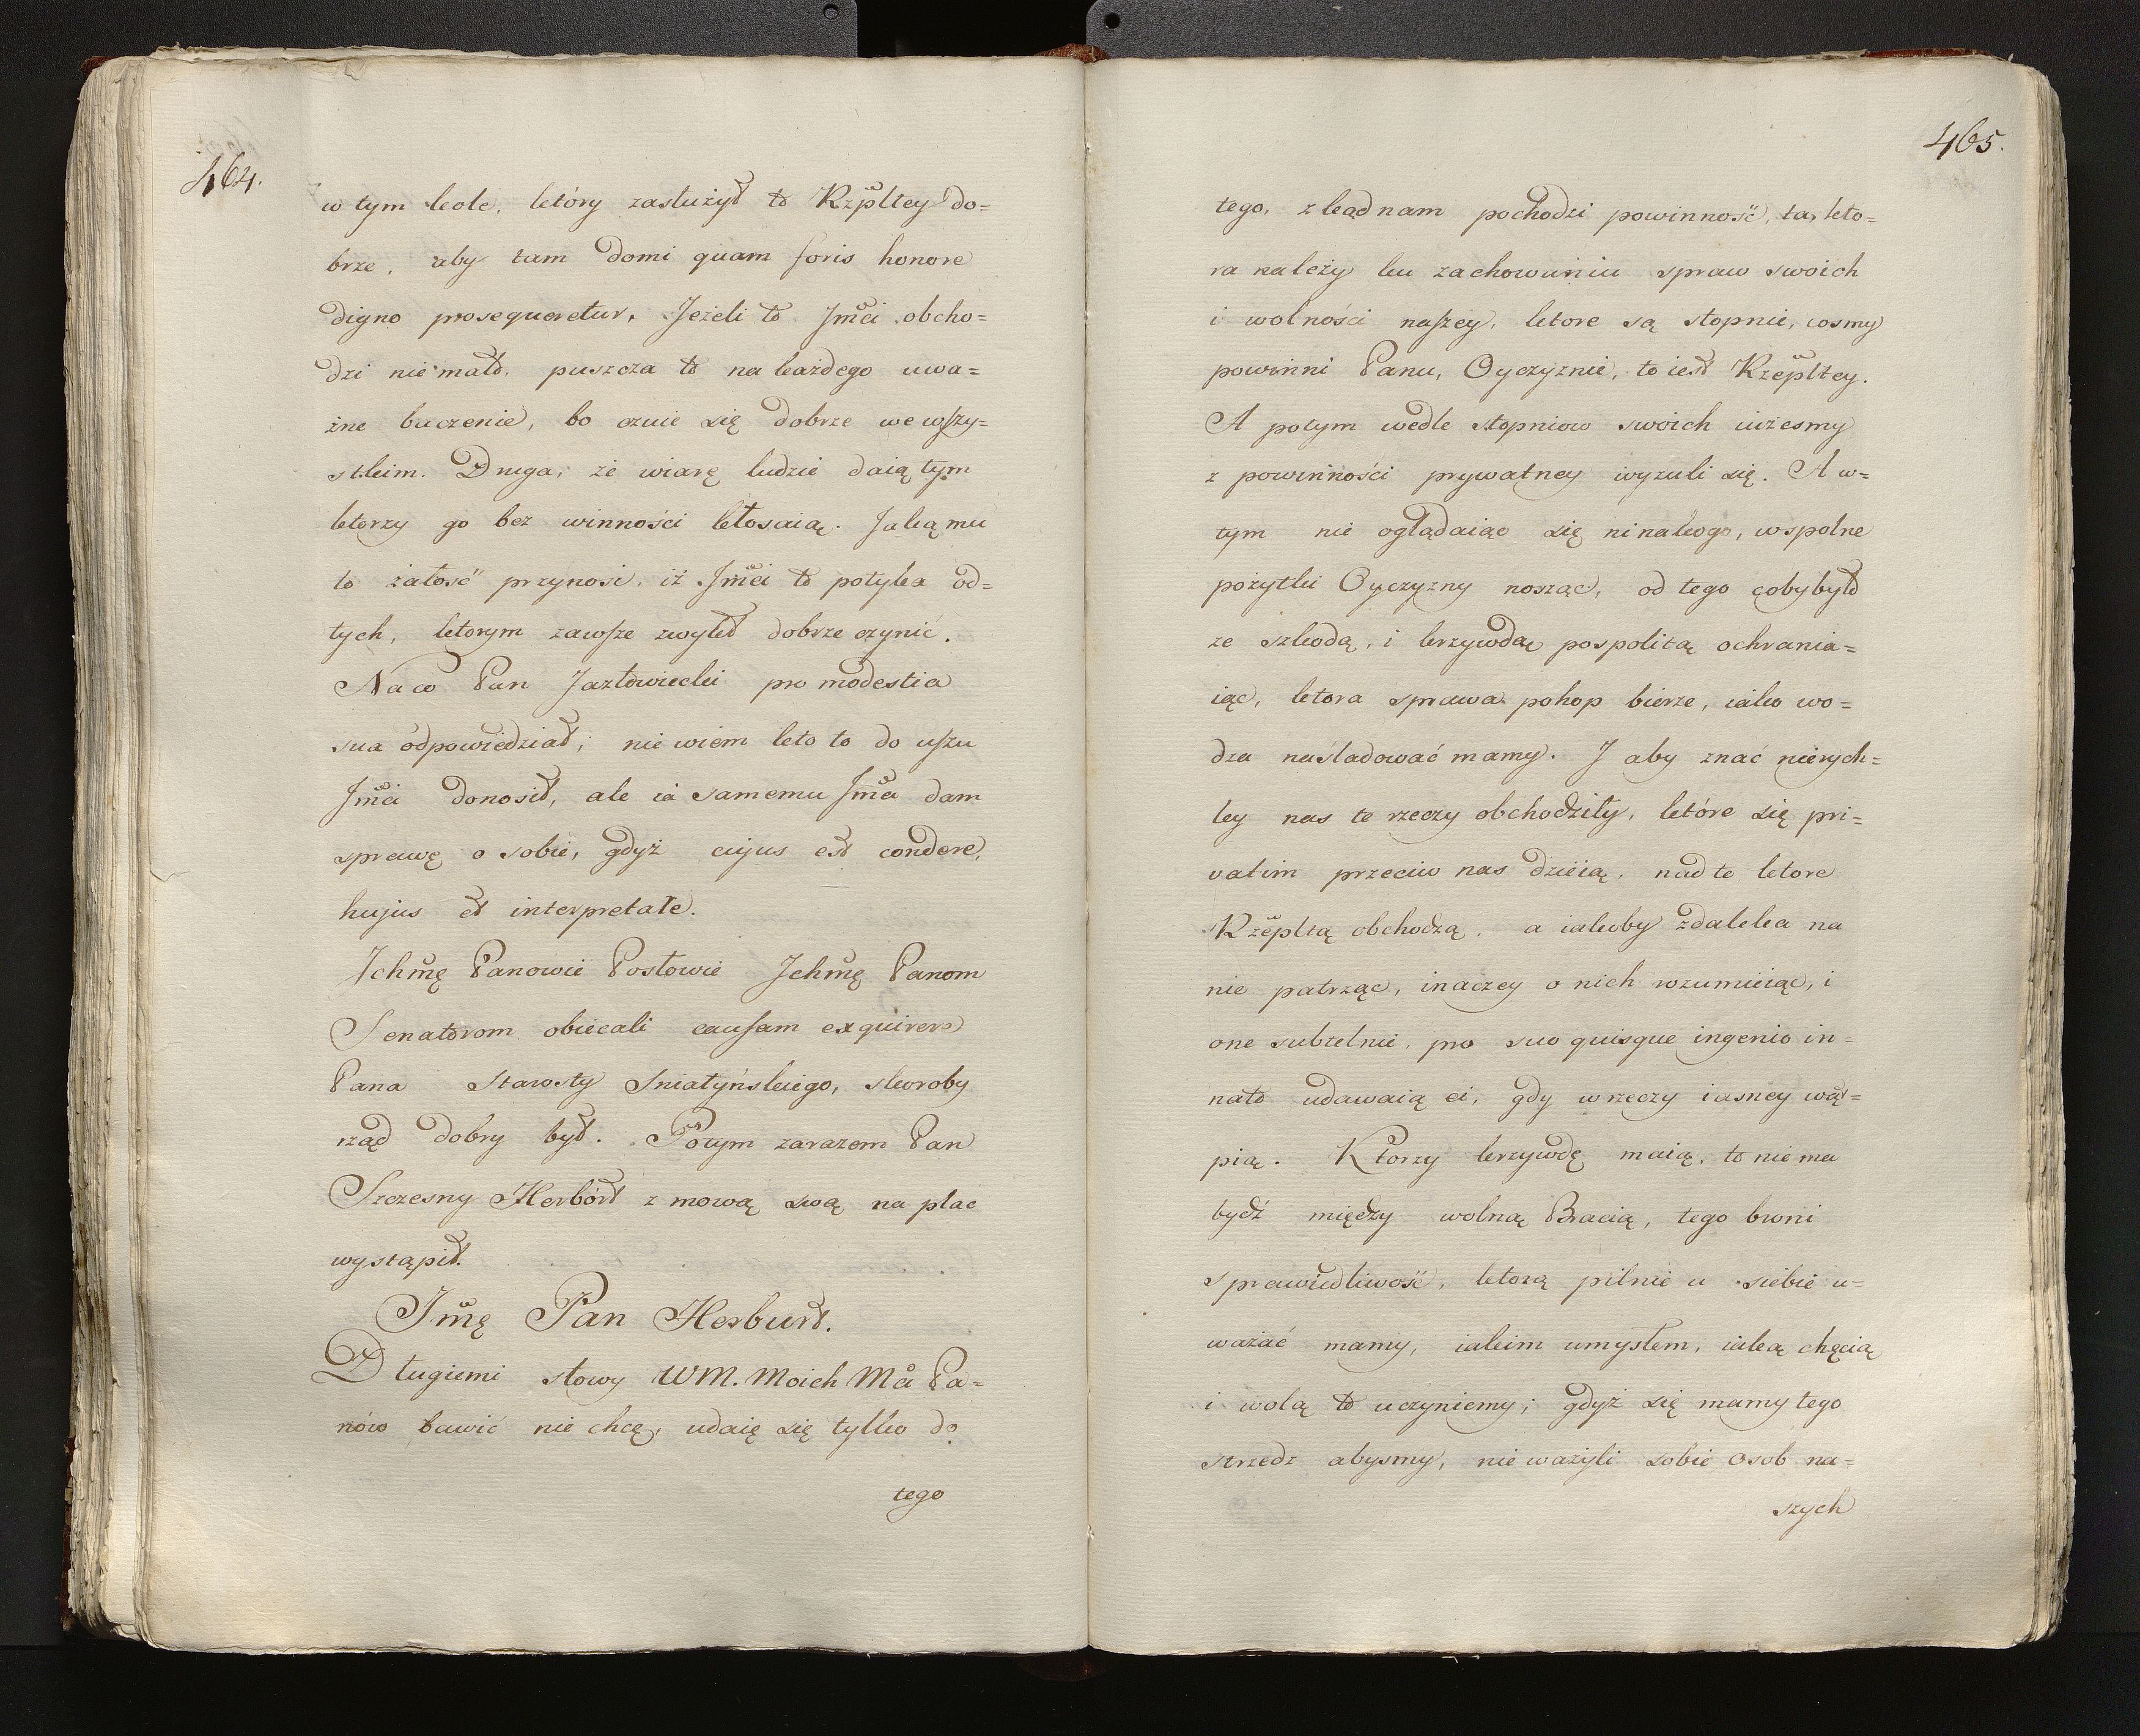 464.
w tym kole, który zasłużył to Rzpltey do=
brze, aby tam domi quam foris honore
digno prosequeretur. Jeżeli to Jmći obcho=
dzi nie mało, puszcza to na każdego uwa=
żne baczenie, bo czuie się dobrze we wszy=
stkim. Druga, że wiarę ludzie daią tym
ktorzy go bez winności kłosaią. Jaką mu
to żałość przynosi, iż Jmći to potyka od=
tych, ktorym zawsze zwykł dobrze czynić.
Na co Pan Jazłowiecki pro modestia
sua odpowiedział; nie wiem kto to do uszu
Jmći donosił, ale ia samemu Jmći dam
sprawę o sobie, gdyż cujus est condere,
hujus est interpretale.
Ichmę Panowie Posłowie Ichmę Panom
Senatorom obiecali causam exquirere
Pana Starosty Sniatyńskiego, skoroby
rząd dobry był. Potym zarazem Pan
Szczesny Herbórt z mową swą na plac
wystąpił.
Jmę Pan Herburt.
Długiemi słowy WM. Moich Mći Pa=
nów bawić nie chcę, udaię się tylko do
tego
465.
tego, zkąd nam pochodzi powinność, ta, kto=
ra należy ku zachowaniu spraw swoich
i wolności naszey, ktore są stopnie, cosmy
powinni Panu, Oyczyznie, to iest Rzepltey.
A potym wedle stopniow swoich iużesmy
z powinności prywatney wyzuli się. A w=
tym nie oglądaiąc się ni nakogo, wspolne
pożytki Oyczyzny nosząc, od tego cobybyło
ze szkodą, i krzywdą pospolitą ochrania=
iąc, ktora sprawa pohop bierze, iako wo=
dza naśladować mamy. J aby znać nierych=
ley nas te rzeczy obchodziły, które się pri=
vatim przeciw nas dzieią, nad te ktore
Rzepltą obchodzą. a iakoby zdaleka na
nie patrząc, inaczey o nich rozumieiąc, i
one subtelnie, pro suo quisque ingenio in=
nato udawaią ei, gdy w rzeczy iasney wąt=
pią. Ktorzy krzywdę maią, to nie ma
bydź między wolną Bracią, tego broni
sprawiedliwość, ktorą pilnie u siebie u=
ważać mamy, iakim umysłem, iaką chęcią
i wolą to uczyniemy; gdyż się mamy tego
strzedz abysmy, nie ważyli sobie osob na=
szych